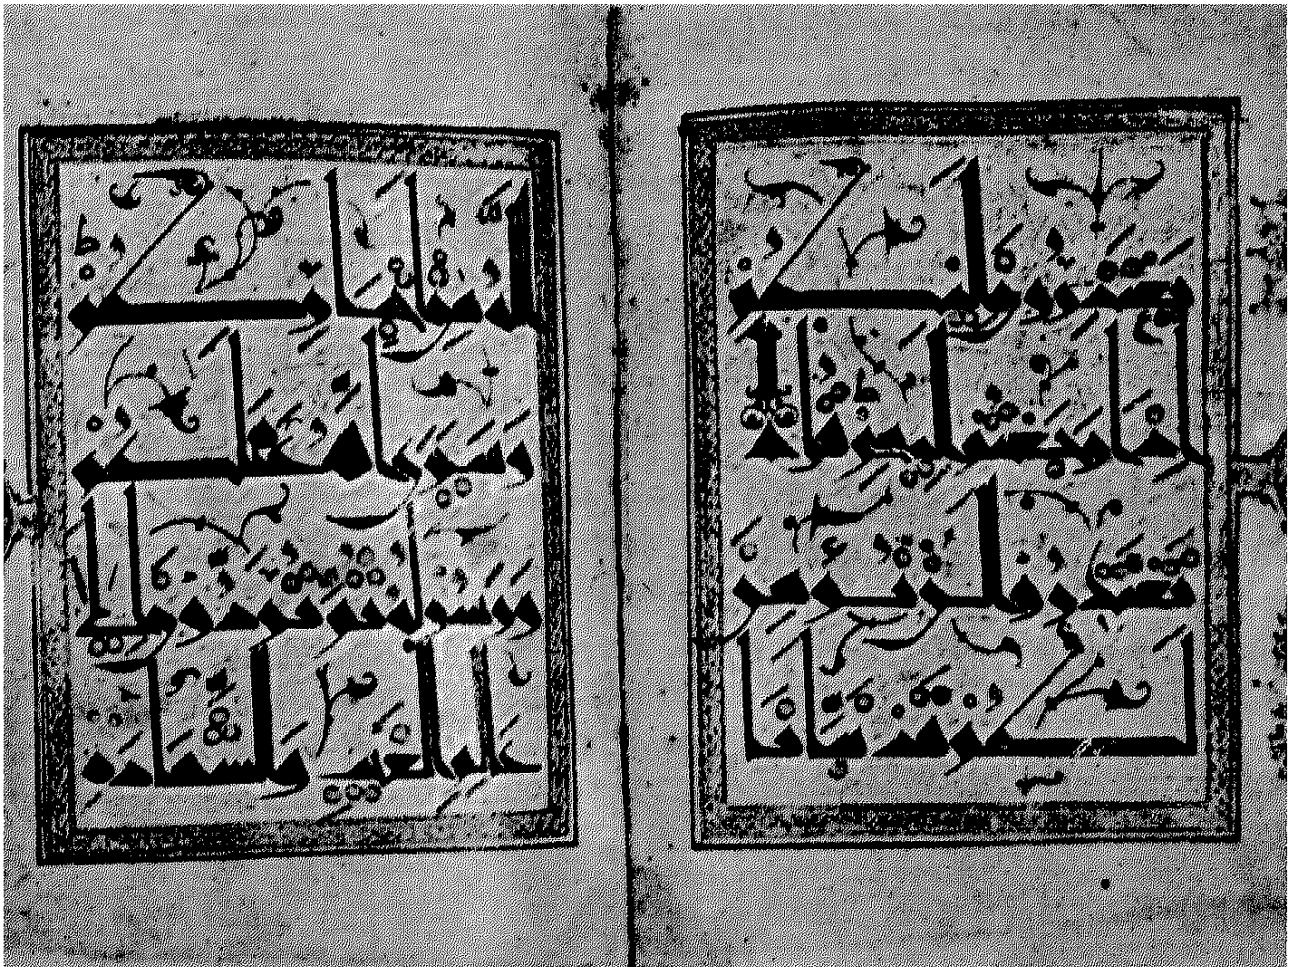 يعتذرون اليكم
اذا رجعتم اليهم قل لا
تعتذروا لن نومن
لكم قد نبانا
الله من اخباركم
وسيرى الله عملكم
ورسوله ثم تردون الى
عالم الغيب والشهادة